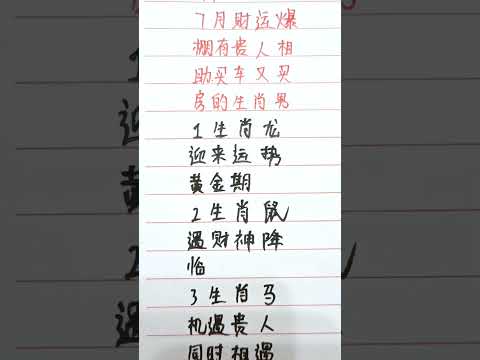 7月财运爆
棚有贵人相
助买车又买
房的生肖男
1生肖龙
迎来运势
黄金期
2生肖鼠
遇财神降
临
3生肖马
机遇贵人
同时相遇